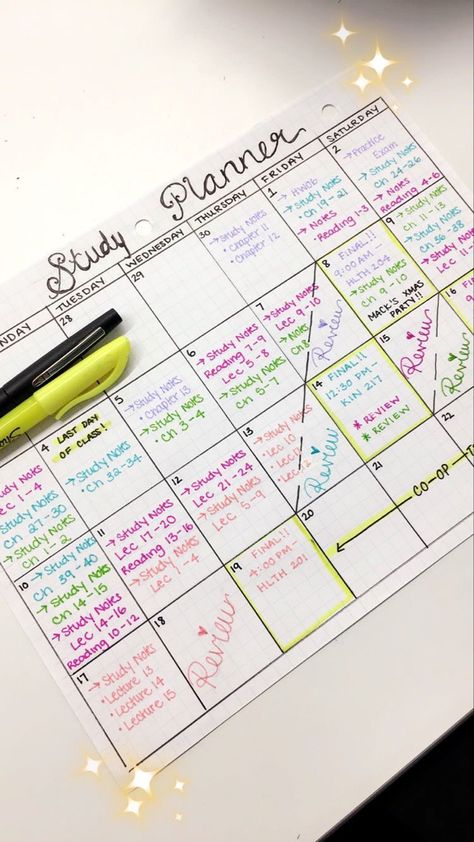 Study Planner
TUESDAY
WEDNESDAY
THURSDAY
FRIDAY
SATURDAY
28
29
30
→Study Notes
• Chapter 11
• Chapter 12
1
→HW06
→Study Notes
Ch 19-21
→Notes
Reading 1-3
2
→Practice
Exam
→Study Notes
Ch 24-26
→Notes
Reading 4-6
4
LAST DAY
OF CLASS!
→Study Notes
Ch 32-34
5
→Study Notes
• Chapter 13
→Study Notes
Ch 3-4
6
→Study Notes
Reading 7-9
Lec 5-8
→Study Notes
Ch 5-7
7
→Study Notes
Lec 9-10
→Notes
Ch 8
Review
8
FINAL!!
9:00 AM -
HLTH 204
→Study Notes
Ch 9-10
MACK'S XMAS
PARTY!!
9
→Study Notes
Ch 11-13
→Study Notes
Ch 36-38
→Study Notes
Lec 11-
Study Notes
Lec 1-4
→Study Notes
Ch 27-30
→Study Notes
Ch 1-2
10
→Study Notes
Ch 39-40
→Study Notes
Ch 14-15
→Study Notes
Lec 14-16
Reading 10-12
11
→Study Notes
Lec 17-20
Reading 13-16
→Study Notes
Lec 1-4
12
→Study Notes
Lec 21-24
→Study Notes
Lec 5-9
13
→Study Notes
Lec 10
Review
14
FINAL!!
12:30 PM -
KIN 217
* REVIEW
* REVIEW
15
Review
16
17
→Study Notes
• Lecture 13
• Lecture 14
• Lecture 15
18
Review
19
FINAL!!
4:00 PM -
HLTH 201
20
21
22
CO-OP